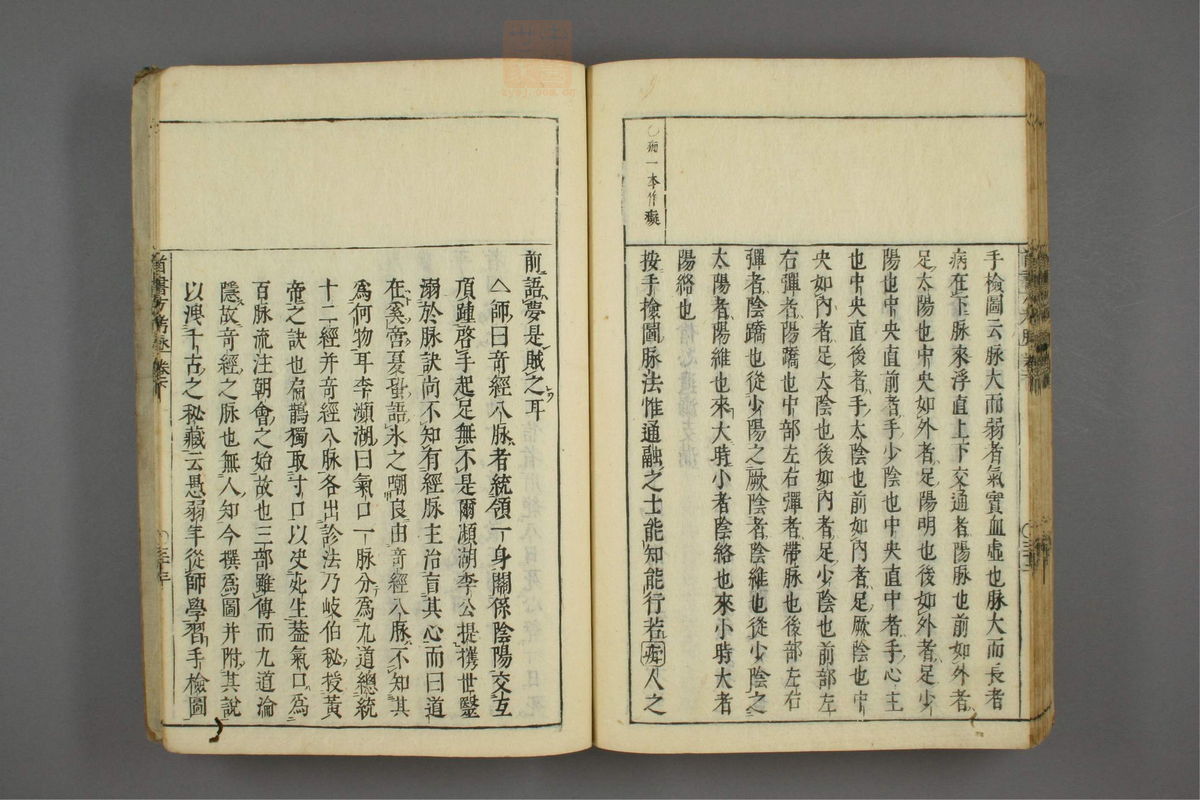 〇痴一本作癡
手檢圖云脉大而弱者氣實血虛也脉大而長者
病在下脉來浮直上下交通者陽脉也前如外者
足太陽也中央如外者足陽明也後如外者足少
陽也中央直前者手少陰也中央直中者手心主
也中央直後者手太陰也前如內者足厥陰也中
央如內者足太陰也後如內者足少陰也前部左
右彈者陽蹻也中部左右彈者帶脉也後部左右
彈者陰蹻也從少陽之厥陰者陰維也從少陰之
太陽者陽維也來大時小者陰絡也來小時大者
陽絡也
按手檢圖脉法惟通融之士能知能行若人之
前語夢是賊之耳
師曰竒經八脉者統領一身關係陰陽交互
頂踵啓手起足無不是爾瀕湖李公提攜世毉
溺於脉訣尚不知有經脉主治盲其心而曰道
在奚啻夏語氷之嘲良由竒經八脉不知其
爲何物耳李瀕湖曰氣口一脉分爲九道總統
十二經并竒經八脉各出診法乃岐伯秘授黃
帝之訣也扁鵲獨取寸口以决死生葢氣口爲
百脉流注朝會之始故也三部雖傳而九道淪
隱故竒經之脉也無人知今撰爲圖并附其說
以洩千古之秘藏云愚弱年從師學習手檢圖